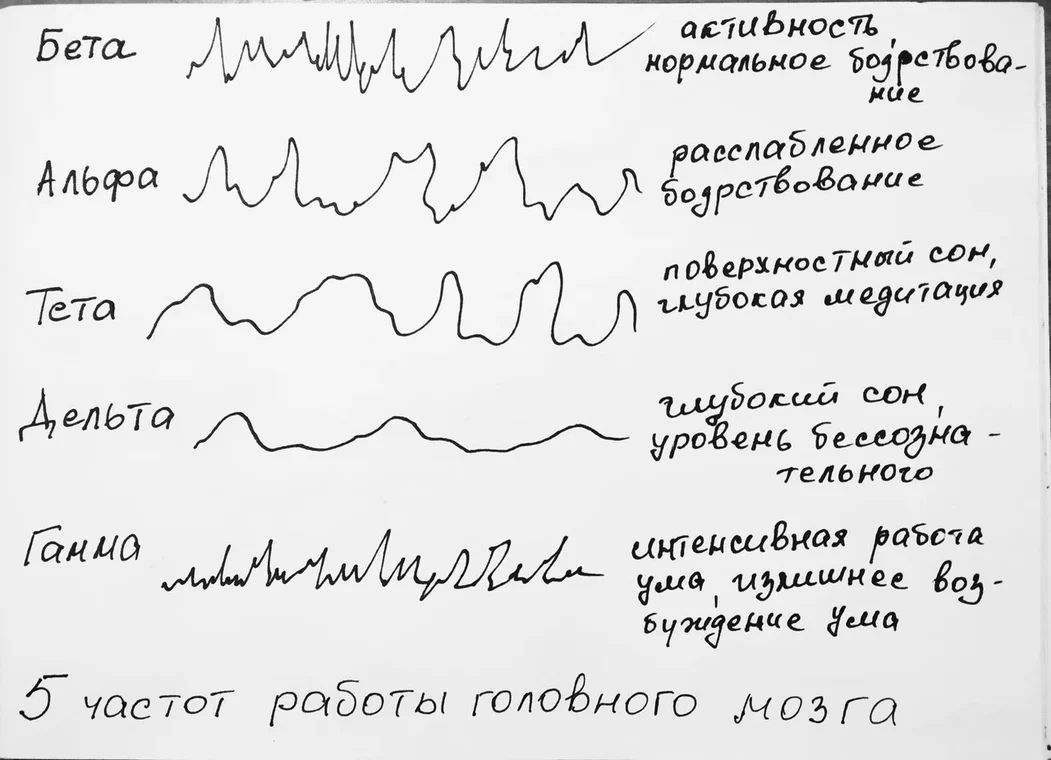 Бета
активность,
нормальное бодрствова-
ние
Альфа
расслабленное
бодрствование
Тета
поверхностный сон,
глубокая медитация
Дельта
глубокий сон,
уровень бессозна-
тельного
Гамма
интенсивная работа
ума, излишнее воз-
буждение ума
5 частот работы головного мозга